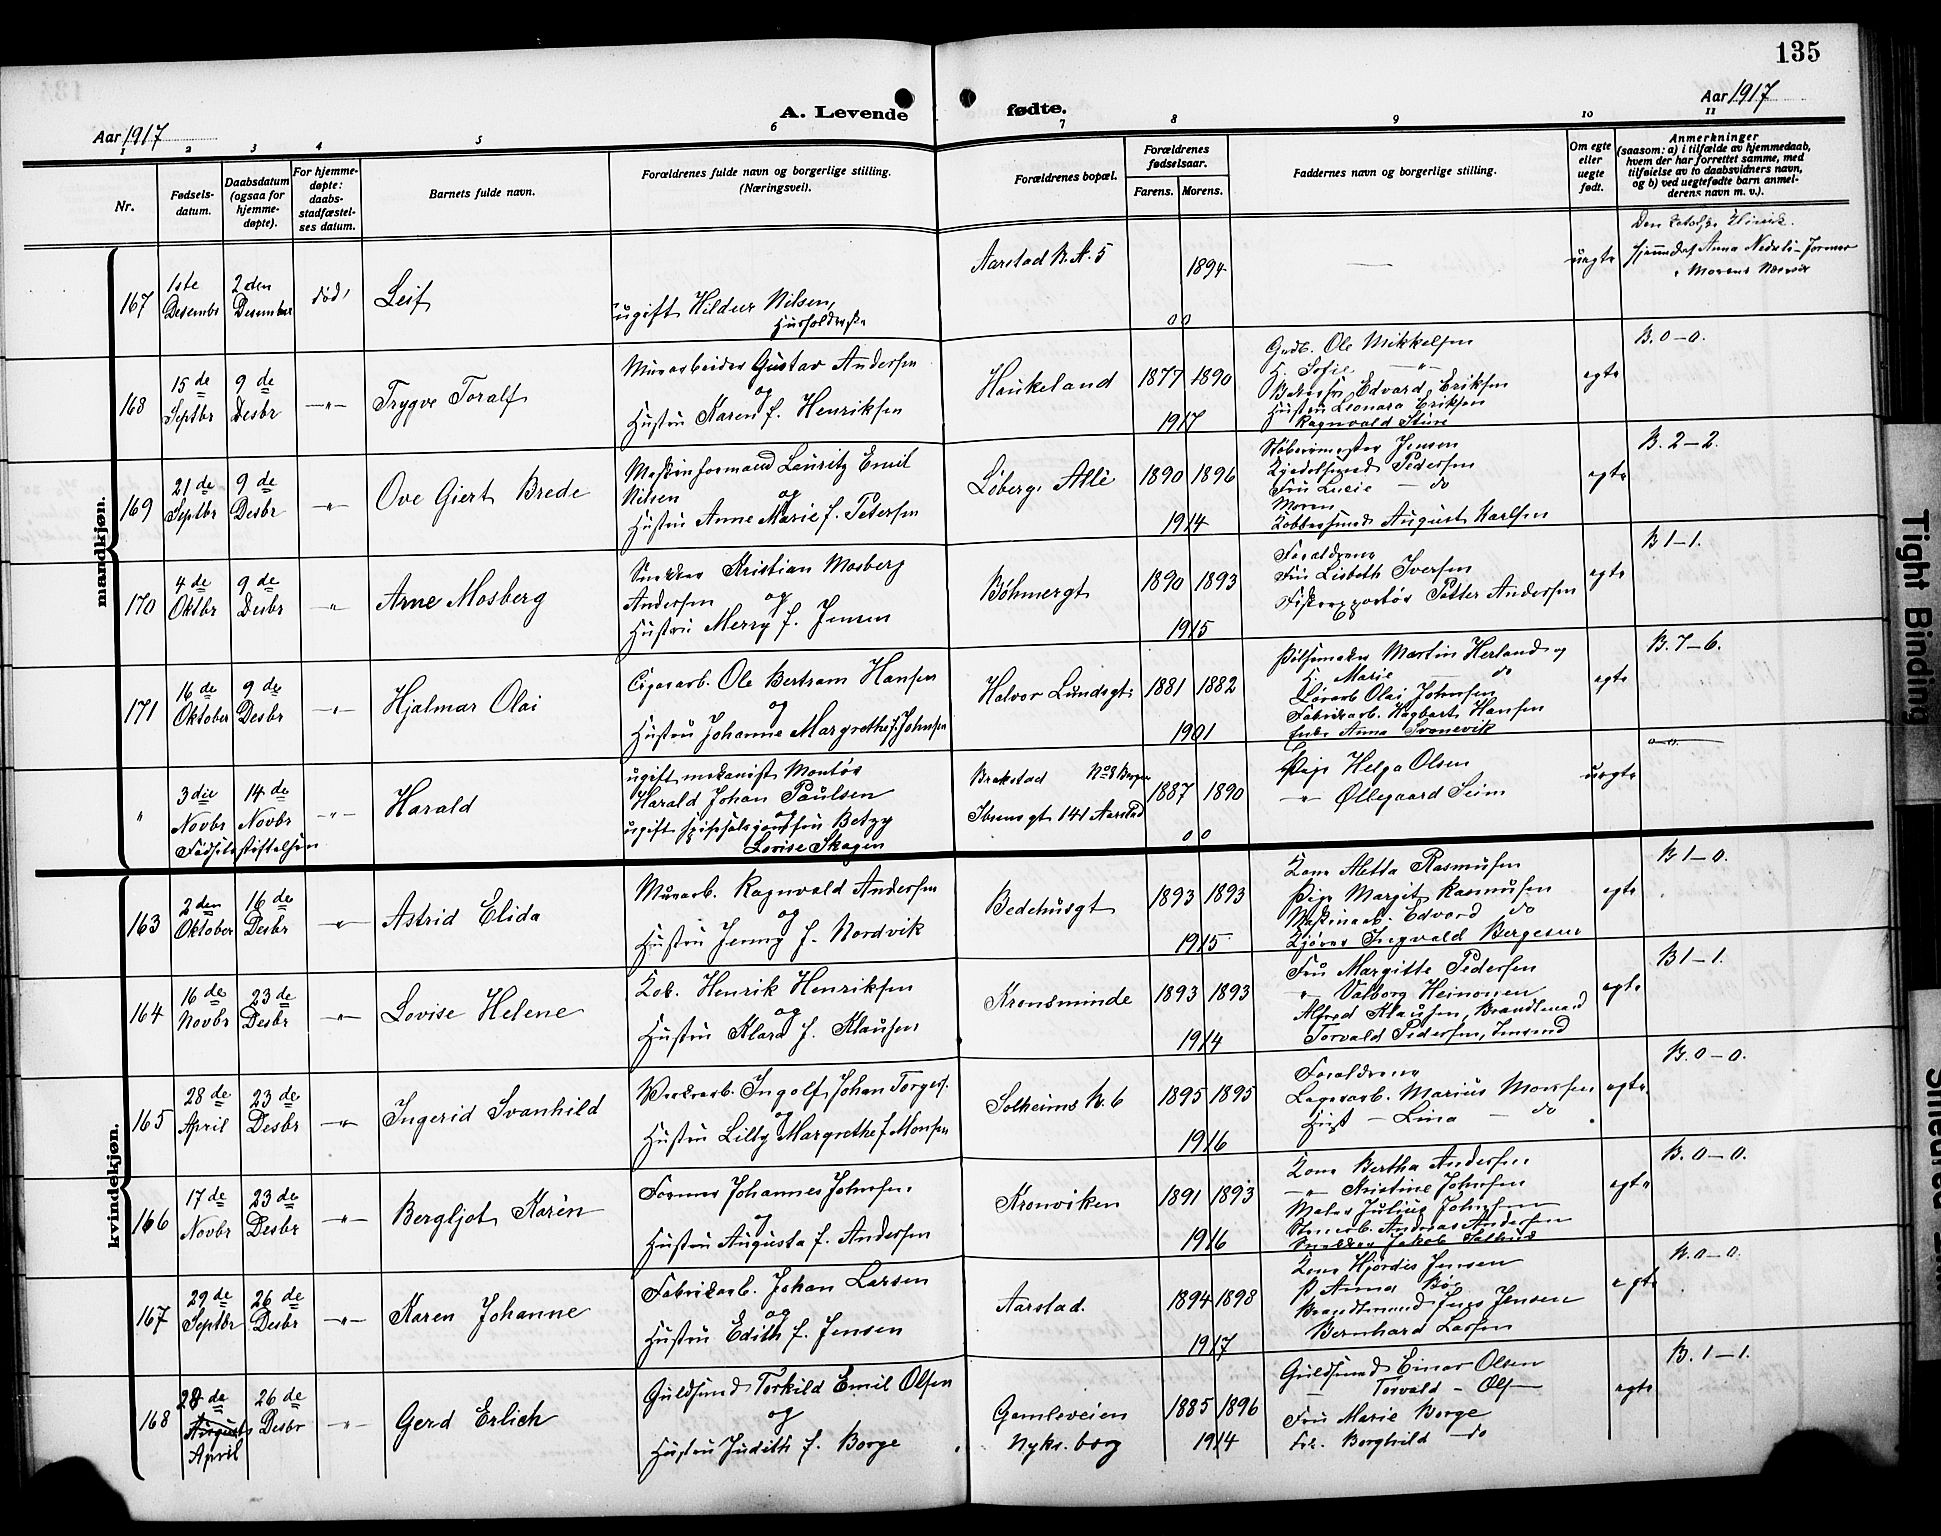 135
Aar 1917
A. Levende fødte.
Aar 1917
1 2 3 4 5 6 7 8 9 10 11
Nr.
Fødsels-
datum.
Daabsdatum
(ogsaa for
hjemme-
døpte).
For hjemme-
døpte:
daabs-
stadfæstel-
ses datum.
Barnets fulde navn.
Forældrenes fulde navn og borgerlige stilling.
(Næringsvei).
Forældrenes bopæl.
Forældrenes
fødselsaar.
Farens. Morens.
Faddernes navn og borgerlige stilling.
Om egte
eller
uegte
født.
Anmerkninger
(saasom: a) i tilfælde av hjemmedaab,
hvem der har forrettet samme, med
tilføielse av to daabsvidners navn,
og b) ved uegtefødte barn anmel-
derens navn m. v.).
mandkjøn.
167
1ste
Desembr
2den
Desember
død
Leif
ugift Hildur Nilsen,
Husholderske
Aarstad N. A. 5
1894
0 0
—
uegte
168
15de
Septbr
9de
Desbr
—"—
Trygve Toralf
Murarbeider Gustav Andersen
og
Hustru Karen f. Henriksen
Haukeland
1877 1890
1917
Ole Mikkelsen
H. Sofie —"—
Edvard Eriksen
Hustru Leonara Eriksen
Ragnvald Stüve
egte
B. 0-0.
169
21de
Septbr
9de
Desbr
—"—
Ove Giert Brede
Maskinformand Lauritz Emil
Nilsen og
Hustru Anne Marie f. Petersen
Løbergs Allè
1890 1896
1914
Støberimester Jensen
Pedersen
Fru Lucie — do
Moren
August Karlsen
egte
B. 2-2.
170
4de
Oktbr
9de
Desbr
—"—
Arne Mosberg
Snekker Kristian Mosberg
Andersen og
Hustru Merry f. Jensen
Bøhmergt
1890 1893
1915
Forældrene
Fru Lisbeth Iversen
Fiskeexportør Petter Andersen
egte
B 1-1.
171
16de
Oktober
9de
Desbr
—"—
Hjalmar Olai
Cigararb. Ole Bertram Hansen
og
Hustru Johanne Margrethe f. Johnsen
Halvor Lundsgt:
1881 1882
1901
Pølsemaker Martin Herland og
H. Marie do
Olai Johnsen
Fabrikarb. Hagbart Hansen
Enke Anna Svanevik
egte
B. 7-6.
"
3die
Novbr
Fødselsstiftelsen
14de
Novbr
—"—
Harald
ugift mekanisk Montør
Harald Johan Paulsen
og
ugift Betzy
Lovise Skagen
Brekstad No 8 Bergen
Ibsensgt 141 Aarstad
1887 1890
0 0
Pige Helga Olsen
—"— Øllegaard Seim
uegte
kvindekjøn.
163
2den
Oktober
16de
Desbr
—"—
Astrid Elida
Murarb. Ragnvald Andersen
og
Hustru Jenny f. Nordvik
Bedehusgt
1893 1893
1915
Kone Aletta Rasmusen
Pige Margit Rasmusen
Maskinarb. Edvard do
Kjører Ingvald Bergesen
egte
B 1-0.
164
16de
Novbr
23de
Desbr
—"—
Lovise Helene
Kob. Henrik Henriksen
og
Hustru Klara f. Klausen
Kronsminde
1893 1893
1914
Fru Margitte Pedersen
—"— Valborg Heinonen
Alfred Klausen, Brandmand
Torvald Pedersen,
egte
B 1-1.
165
28de
April
23de
Desbr
—"—
Ingerid Svanhild
Verksarb. Ingolf Johan Torgers.
og
Hustru Lilly Margrethe f Monsen
Solheims N. 6
1895 1895
1916
Forældrene
Lagerarb. Marius Monsen
Hust — Lina — do
egte
B. 0-0.
166
17de
Novbr
23de
Desbr
—"—
Bergljot Karèn
Former Johannes Johnsen
og
Hustru Augusta f. Andersen
Kronviken
1891 1893
1916
Kone Bertha Andersen
—"— Kristine Johnsen
Maler Julius Johnsen
Stenarb. Andreas Andersen
Snekker Jakob
egte
B. 0-0.
167
29de
Septbr
26de
Desbr
—"—
Karen Johanne
Fabrikarb. Johan Larsen
og
Hustru Edith f. Jensen
Aarstad.
1894 1898
1917
Kone Hjørdis Jensen
P. Anna Bøe
Brandmand Jens Jensen
Bernhard Larsen
egte
B. 0-0.
168
28de
August
April
26de
Desbr
—"—
Gerd Erlich
Guldsmed Torkild Emil Olsen
og
Hustru Judith f. Borge
Gamleveien
Nyks.borg
1885 1896
1914
Guldsmed Einar Olsen
— Torvald — Ols —
Fru Marie Borge
Frk. Borghild — do
egte
B. 1-1.
Tight Binding